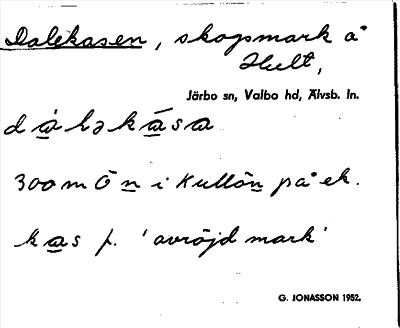 Dalekasen, skogsmark å
Hult,
Järbo sn, Valbo hd, Älvsb. ln.
dàləkása
300 m Ö n i Kullön på ek.
kas f. 'avröjd mark'
G. JONASSON 1952.